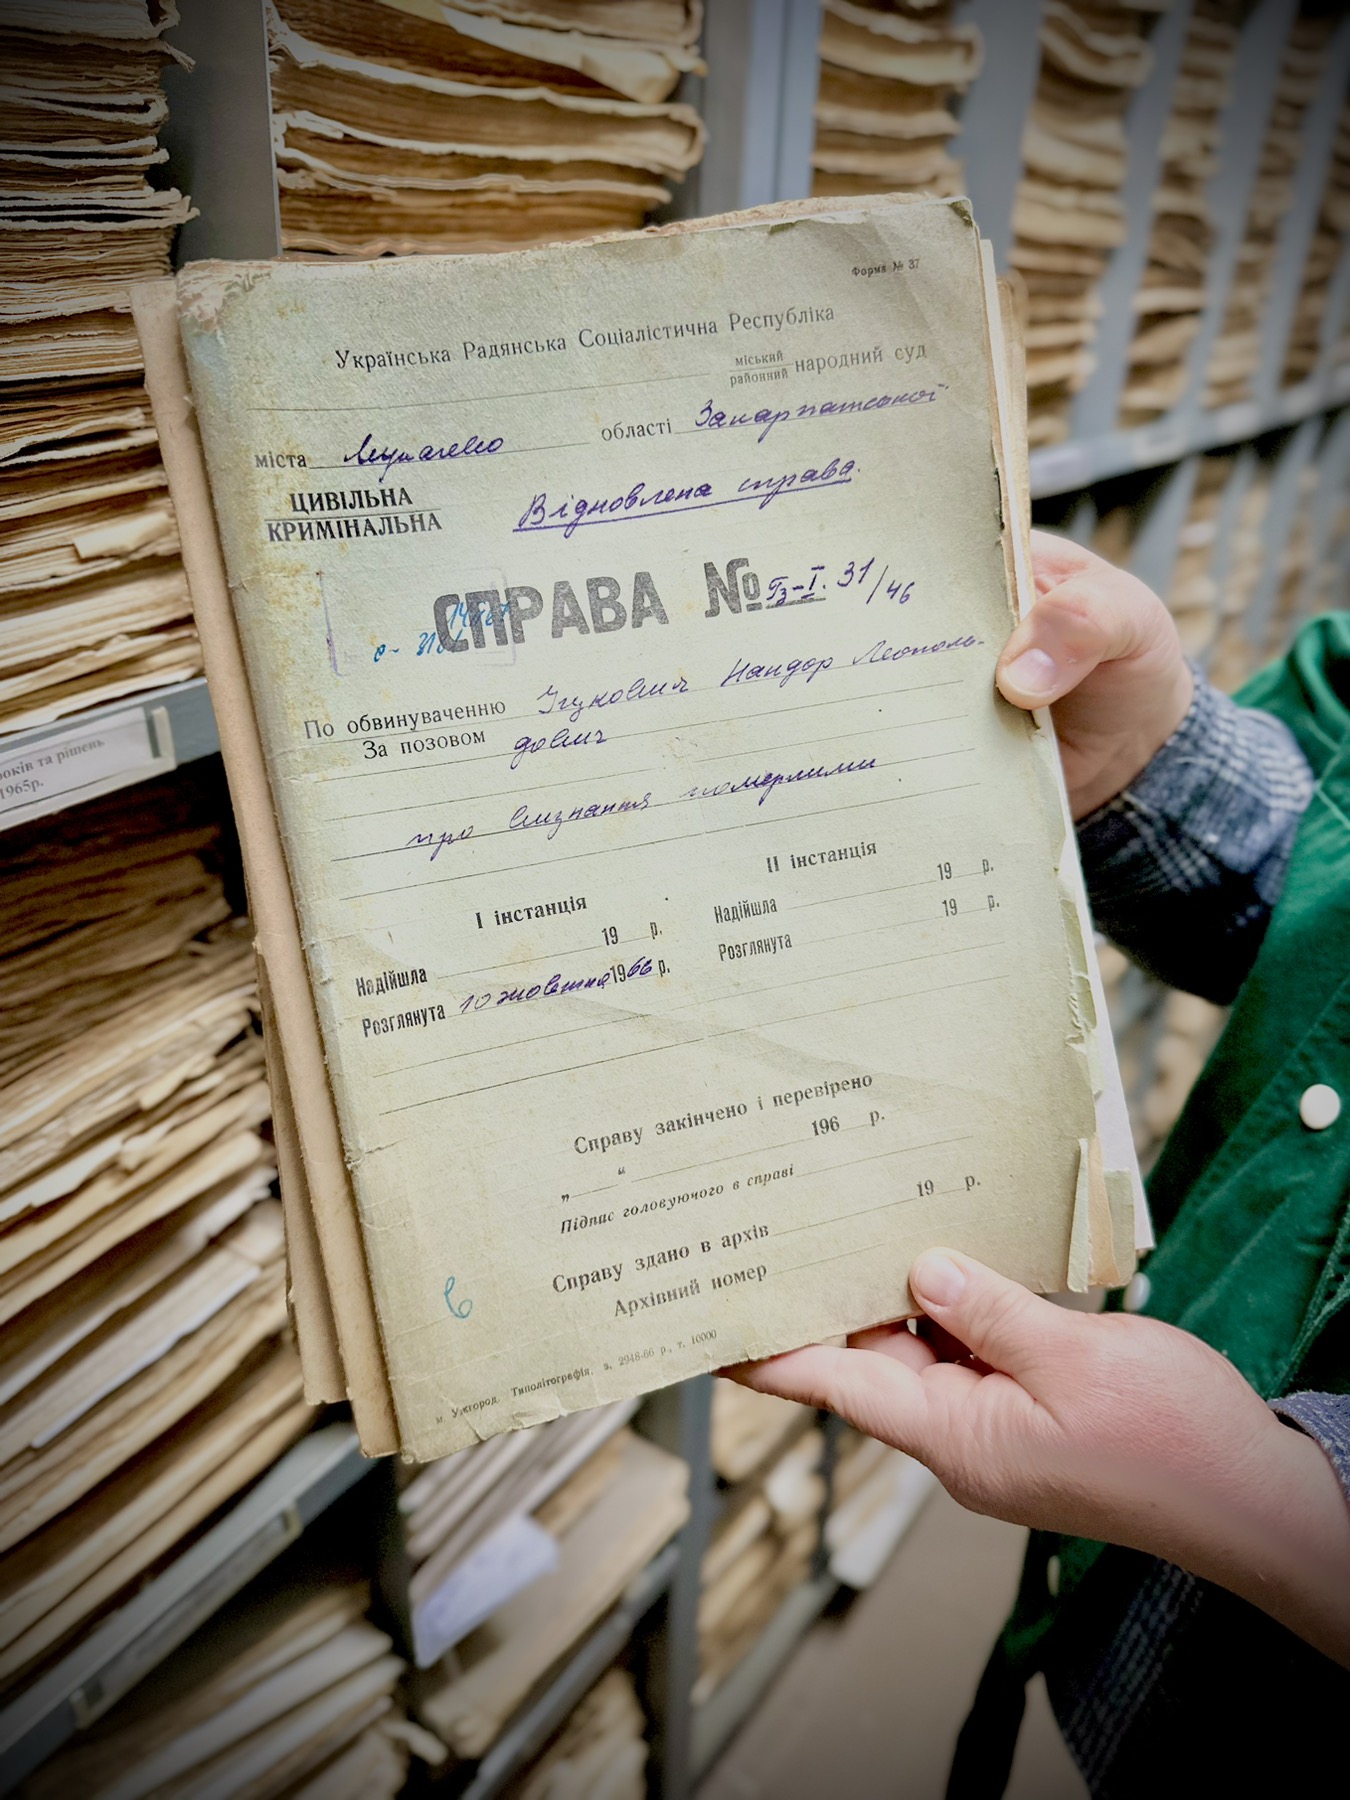 Форма № 37
Українська Радянська Соціалістична Республіка
міський
районний народний суд
міста Мукачево області Закарпатської
ЦИВІЛЬНА
КРИМІНАЛЬНА
Відновлена справа.
СПРАВА № Гз-I. 31/46
По обвинуваченню Іцкович Нандор Леополь-
За позовом дович
про визнання померлими
І інстанція
19 р.
Надійшла
Розглянута 10 жовтня 1966 р.
ІІ інстанція
Надійшла 19 р.
Розглянута 19 р.
Справу закінчено і перевірено
„ “ 196 р.
Підпис головуючого в справі
Справу здано в архів 19 р.
Архівний номер
6
м. Ужгород. Типолітографія, з. 2948-66 р., т. 10000
років та рішень
1965р.